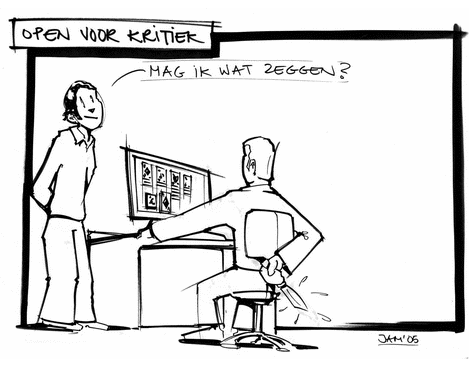 OPEN VOOR KRITIEK
MAG IK WAT ZEGGEN?
JAM'05